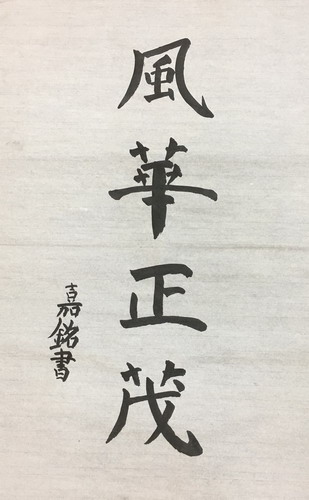 風華正茂
嘉銘書